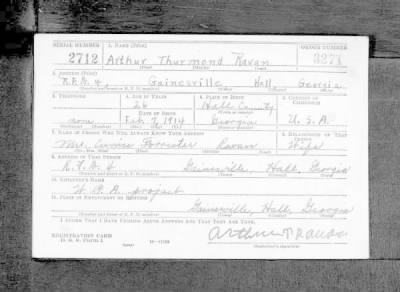 SERIAL NUMBER 1. NAME (Print) ORDER NUMBER
2712 Arthur Thurmond Ravan 3271
(First) (Middle) (Last)
2. ADDRESS (Print)
R.F.D. 4, Gainesville Hall Georgia
3. TELEPHONE 4. AGE IN YEARS 5. PLACE OF BIRTH 6. COUNTRY OF CITIZENSHIP
26 Hall County
none Feb. 7, 1914 Georgia U.S.A.
7. NAME OF PERSON WHO WILL ALWAYS KNOW YOUR ADDRESS 8. RELATIONSHIP OF THAT PERSON
Mrs. Forrester Ravan Wife
9. ADDRESS OF THAT PERSON
R.F.D. 4 Gainesville, Hall, Georgia
10. EMPLOYER'S NAME
W.P.A. project
11. PLACE OF EMPLOYMENT OR BUSINESS
Gainesville, Hall, Georgia
I AFFIRM THAT I HAVE VERIFIED ABOVE ANSWERS AND THAT THEY ARE TRUE.
REGISTRATION CARD
D. S. S. Form 1 Arthur T Ravan